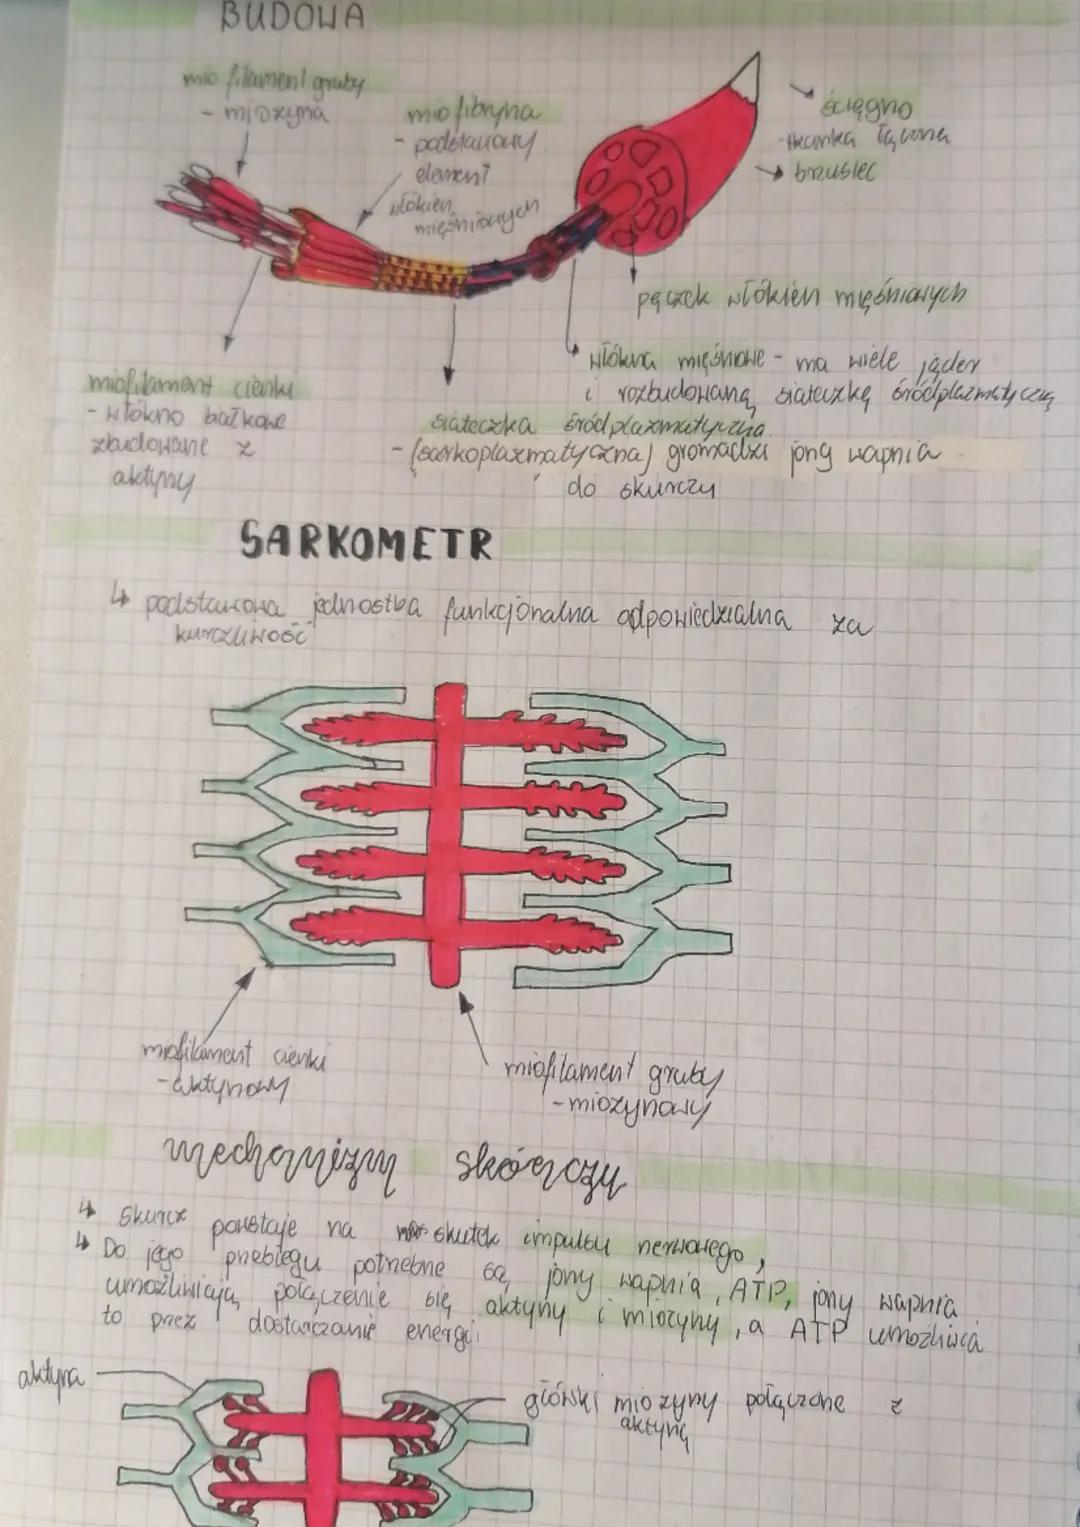 BUDOWA
mio filament gruby
- miozyna
miofibryna
- podstawowy
element
włókien
mięśniowych
ścięgno
- tkanka łączna
brzusiec
pęczek włókien mięśniowych
włókna mięśniowe - ma wiele jąder
i rozbudowaną siateczkę śródplazmatyczną
miofilament cienki
- włókno białkowe
zbudowane z
aktyny
siateczka śródplazmatyczna
- (sarkoplazmatyczna) gromadzi jony wapnia
do skurczu
SARKOMETR
↳ podstawowa jednostka funkcjonalna odpowiedzialna za
kurczliwość
miofilament cienki
- aktynowy
miofilament gruby
- miozynowy
mechanizm skórczu
↳ Skurcz powstaje na skutek impulsu nerwowego,
↳ Do jego przebiegu potrzebne są jony wapnia, ATP, jony wapnia
umożliwiają połączenie się aktyny i miozyny, a ATP umożliwia
to przez dostarczanie energii
aktyna
główki miozyny połączone z
aktyną